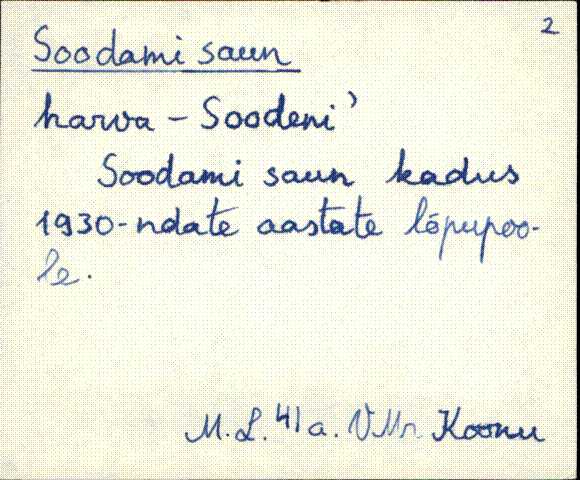 2
Soodami saun
harva - Soodeni'
Soodami saun kadus
1930-ndate aastate lõpupoo-
le.
M. L. 41 a. VMr. Koonu